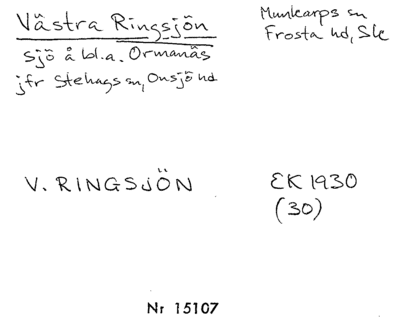 Västra Ringsjön
sjö å bl.a. Ormanäs
jfr Stehags sn, Onsjö hd
Munkarps sn
Frosta hd, Sk
V. RINGSJÖN
EK 1930
(30)
Nr 15107